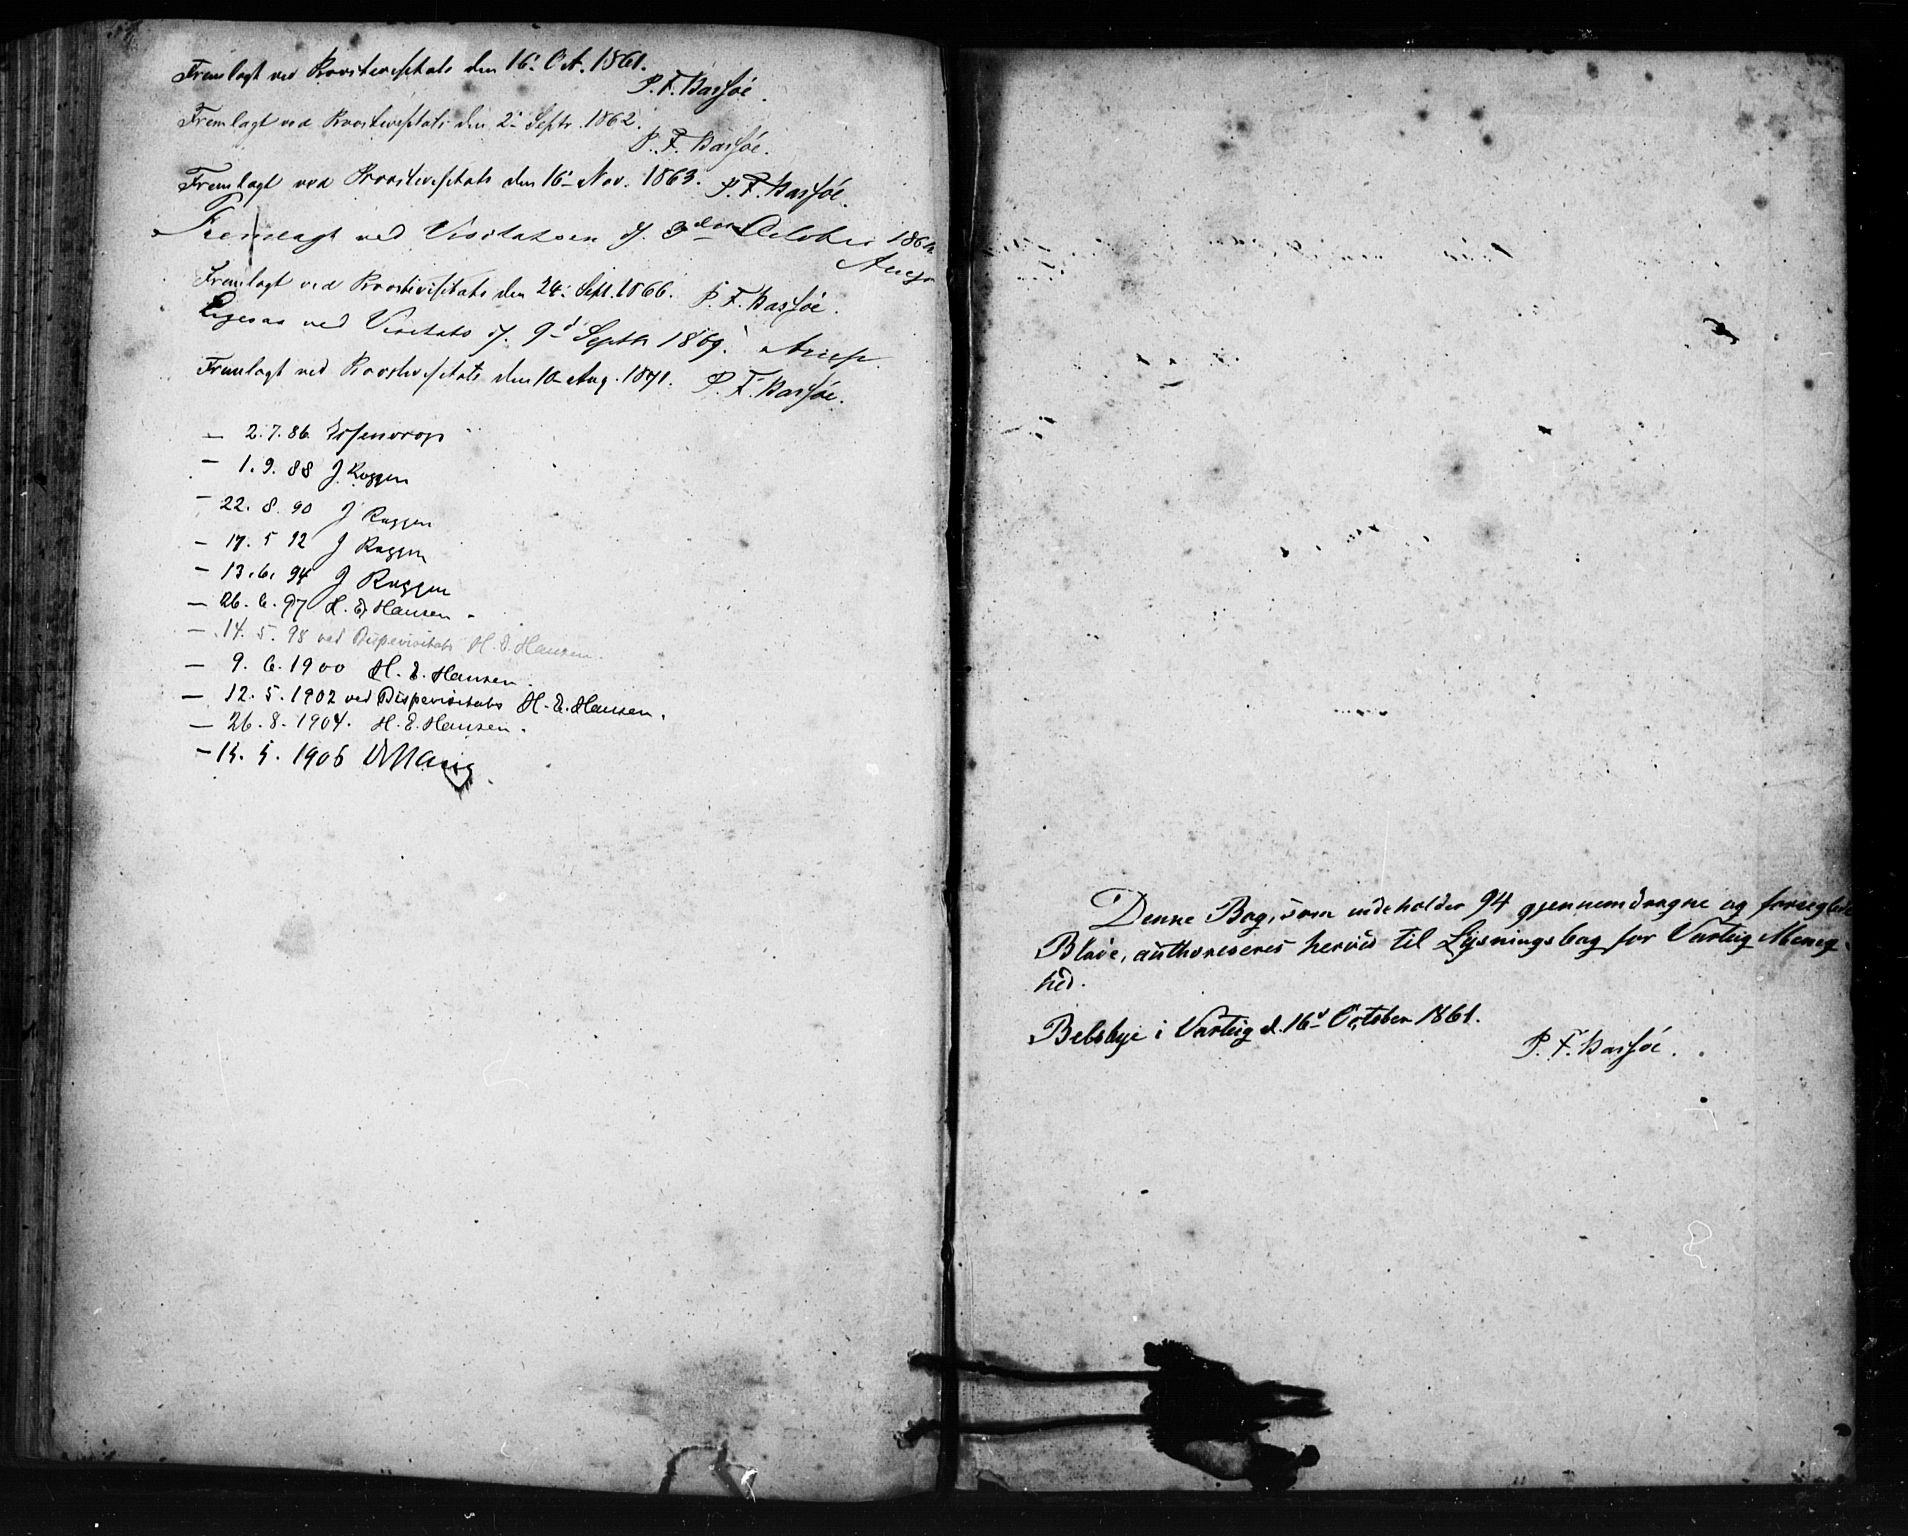 Fremlagt ved Provstevisitats den 16: Oct. 1861.
P. F. Bassøe.
Fremlagt ved Provstevisitats den 2: Septr. 1862.
P. F. Bassøe.
Fremlagt ved Provstevisitats den 16: Nov. 1863. P. F. Bassøe.
Fremlagt ved Visitatsen d. 3die October
Arup
Fremlagt ved Provstevisitats den 24: Sept. 1866. P. F. Bassøe.
Ligesaa ved Visitats d. 9d Septbr 1869. Arup
Fremlagt ved Provstevisitats den 10 Aug. 1871. P. F. Bassøe.
— 2.7.86 Essendrop
— 1.9.88 J Roggen
— 22.8.90 J Roggen
— 17.5 92 J Roggen
— 13.6.94 J Roggen
— 26.6.97 H. E. Hansen.
— 14.5.98 ved Bispevisitats H. E. Hansen.
— 9.6.1900 H. E. Hansen.
— 12.5.1902 ved Bispevisitats H. E. Hansen.
— 26.8.1904. H. E. Hansen.
— 5.1906
Denne Bog, som indeholder 94 gjennemdragne og forseglede
Blade, authoriseres herved til Lysningsbog for Varteig Menig-
hed.
Belsbye i Varteig d. 16d October 1861.
P. F. Bassøe.